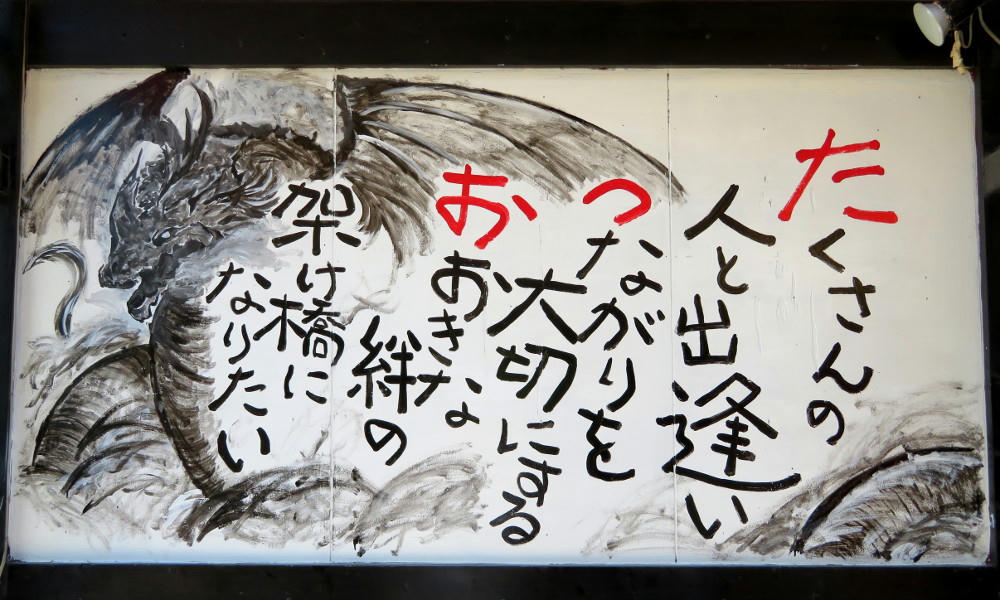 たくさんの
人と出逢い
つながりを
大切にする
おおきな
絆の
架け橋に
なりたい